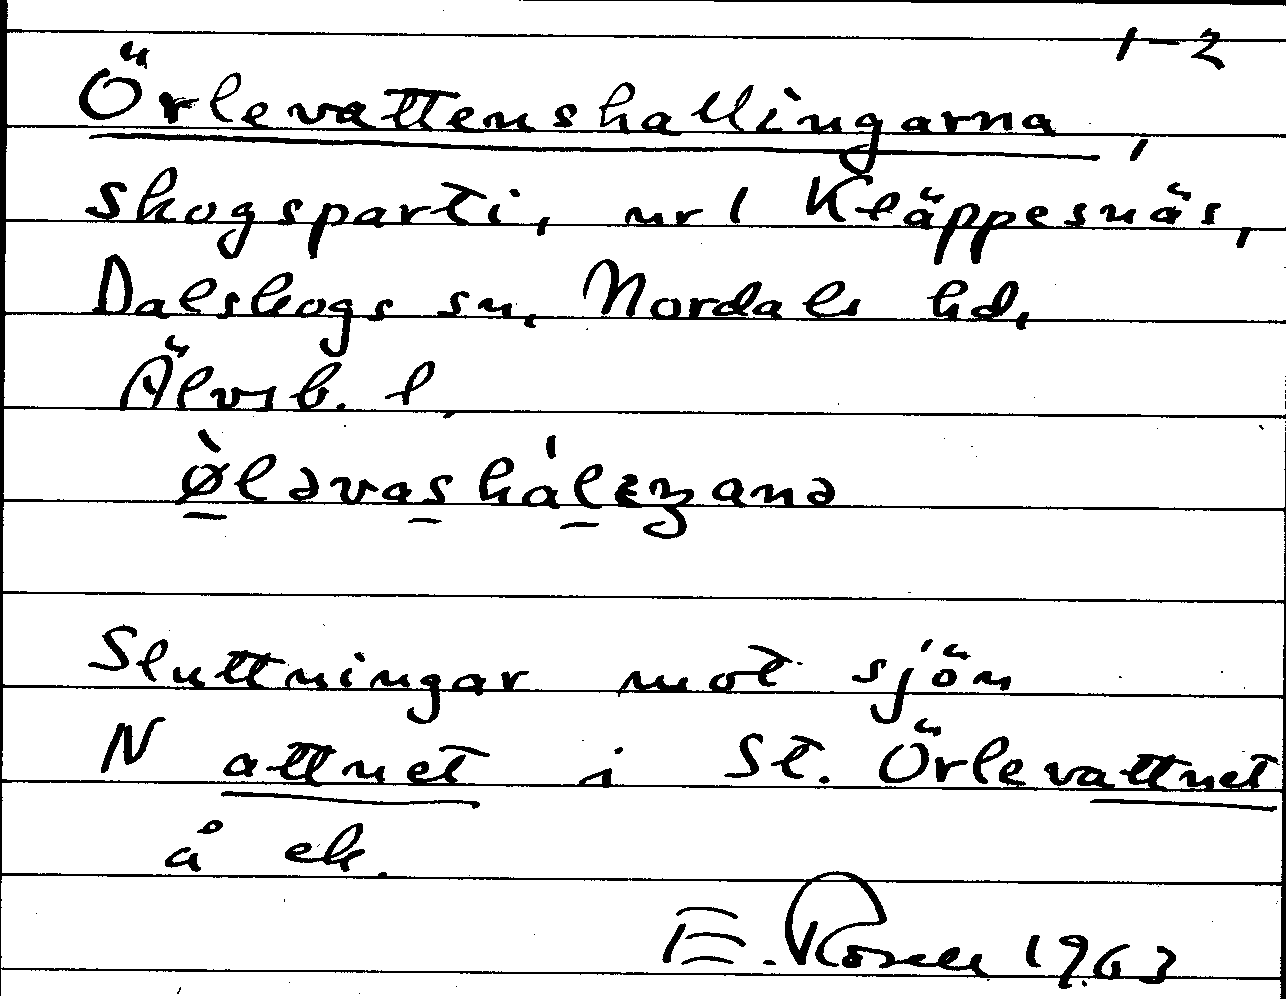 1-2
Örlevattenshallingarna,
skogsparti, nr 1 Kläppesnäs,
Dalskogs sn, Nordals hd,
Älvsb. l.
øləvashalɛŋanə
Sluttningar mot sjön
N attnet i St. Örlevattnet
å ek.
E. Rosell 1963